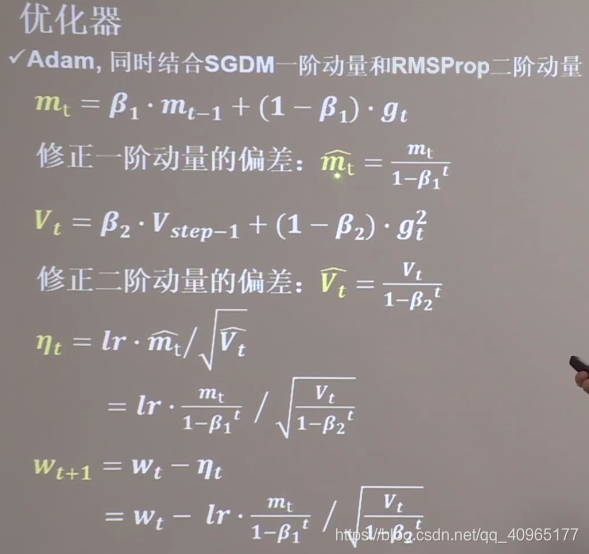 优化器
✓Adam, 同时结合SGDM一阶动量和RMSProp二阶动量
m_t = β_1 · m_{t-1} + (1 − β_1) · g_t
修正一阶动量的偏差: \widehat{m_t} = \frac{m_t}{1-β_1^t}
V_t = β_2 · V_{step-1} + (1 − β_2) · g_t^2
修正二阶动量的偏差: \widehat{V_t} = \frac{V_t}{1-β_2^t}
η_t = lr · \widehat{m_t} / \sqrt{\widehat{V_t}}
= lr · \frac{m_t}{1-β_1^t} / \sqrt{\frac{V_t}{1-β_2^t}}
w_{t+1} = w_t − η_t
= w_t − lr · \frac{m_t}{1-β_1^t} / \sqrt{\frac{V_t}{1-β_2^t}}
https://blog.csdn.net/qq_40965177